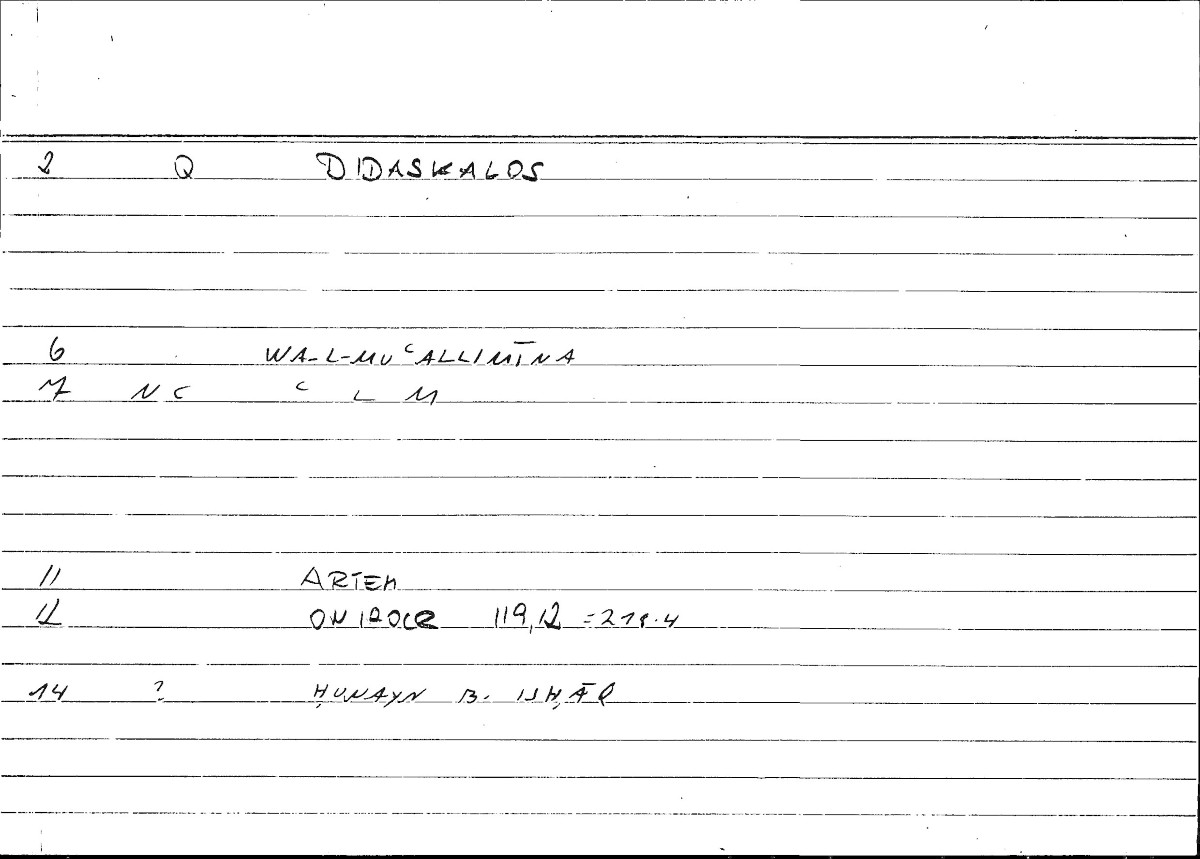 2 Q DIDASKALOS
6 WA-L-MUʿALLIMĪNA
7 NC ʿ L M
11 ARTEM
12 ONIROCR 119,12 = 218.4
14 ? ḤUNAYN B. ISḤĀQ